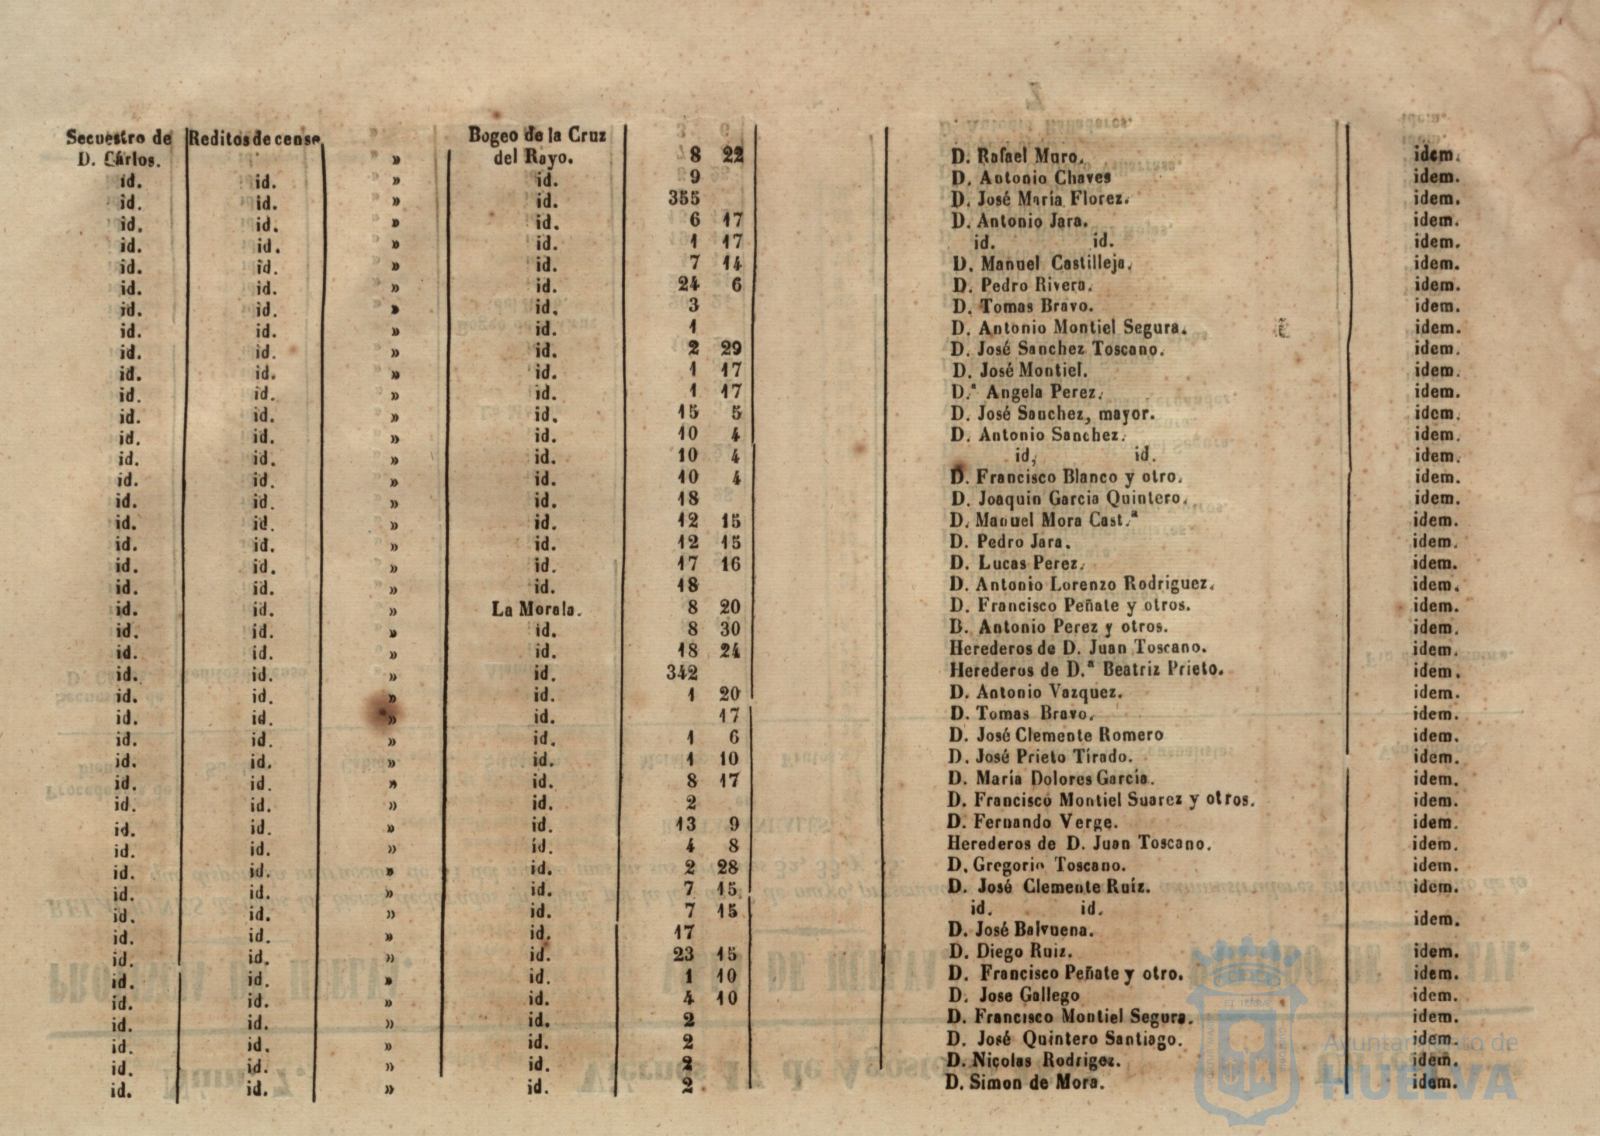 Secuestro de Reditos de cense Bogeo de la Cruz
D. Cárlos. » del Rayo. 8 22 D. Rafael Muro. idem.
id. id. » id. 9 D. Antonio Chaves idem.
id. id. » id. 355 D. José María Florez. idem.
id. id. » id. 6 17 D. Antonio Jara. idem.
id. id. » id. 1 17 id. id. idem.
id. id. » id. 7 14 D. Manuel Castilleja. idem.
id. id. » id. 24 6 D. Pedro Rivera. idem.
id. id. » id. 3 D. Tomas Bravo. idem.
id. id. » id. 1 D. Antonio Montiel Segura. idem.
id. id. » id. 2 29 D. José Sanchez Toscano. idem.
id. id. » id. 1 17 D. José Montiel. idem.
id. id. » id. 1 17 D.ª Angela Perez. idem.
id. id. » id. 15 5 D. José Sanchez, mayor. idem.
id. id. » id. 10 4 D. Antonio Sanchez. idem.
id. id. » id. 10 4 id, id. idem.
id. id. » id. 10 4 D. Francisco Blanco y otro. idem.
id. id. » id. 18 D. Joaquin Garcia Quintero. idem.
id. id. » id. 12 15 D. Manuel Mora Cast.ª idem.
id. id. » id. 12 15 D. Pedro Jara. idem.
id. id. » id. 17 16 D. Lucas Perez. idem.
id. id. » id. 18 D. Antonio Lorenzo Rodriguez. idem.
id. id. » La Morala. 8 20 D. Francisco Peñate y otros. idem.
id. id. » id. 8 30 B. Antonio Perez y otros. idem.
id. id. » id. 18 24 Herederos de D. Juan Toscano. idem.
id. id. » id. 342 Herederos de D.ª Beatriz Prieto. idem.
id. id. » id. 1 20 D. Antonio Vazquez. idem.
id. id. » id. 17 D. Tomas Bravo. idem.
id. id. » id. 1 6 D. José Clemente Romero idem.
id. id. » id. 1 10 D. José Prieto Tirado. idem.
id. id. » id. 8 17 D. María Dolores García. idem.
id. id. » id. 2 D. Francisco Montiel Suarez y otros. idem.
id. id. » id. 13 9 D. Fernando Verge. idem.
id. id. » id. 4 8 Herederos de D. Juan Toscano. idem.
id. id. » id. 2 28 D. Gregorio Toscano. idem.
id. id. » id. 7 15 D. José Clemente Ruíz. idem.
id. id. » id. 7 15 id. id. idem.
id. id. » id. 17 D. José Balvuena.
id. id. » id. 23 15 D. Diego Ruiz. idem.
id. id. » id. 1 10 D. Francisco Peñate y otro. idem.
id. id. » id. 4 10 D. Jose Gallego idem.
id. id. » id. 2 D. Francisco Montiel Segura. idem.
id. id. » id. 2 D. José Quintero Santiago. idem.
id. id. » id. 2 D. Nicolas Rodrigez. idem.
id. id. » id. 2 D. Simon de Mora. idem.
Ayuntamiento de
HUELVA